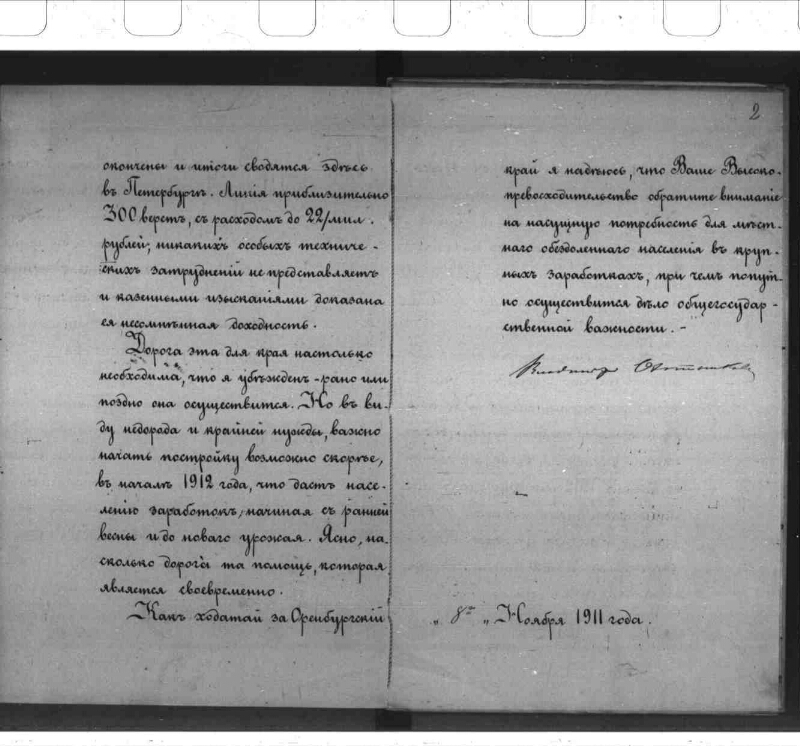 окончены и итоги сводятся здѣсь
въ Петербургѣ. Линія приблизительно
300 верстъ, съ расходомъ до 22/мил.
рублей, никакихъ особыхъ техниче-
скихъ затрудненій не представляетъ
и казенными изысканіями доказана
ея несомнѣнная доходность.
Дорога эта для края настолько
необходима, что я убѣжденъ - рано или
поздно она осуществится. Но въ ви-
ду недорода и крайней нужды, важно
начать постройку возможно скорѣе,
въ началѣ 1912 года, что дастъ насе-
ленію заработокъ, начиная съ ранней
весны и до новаго урожая. Ясно, на-
сколько дорога та помощь, которая
является своевременно.
Какъ ходатай за Оренбургскій
2
край я надѣюсь, что Ваше Высоко-
превосходительство обратите вниманіе
на насущную потребность для мѣст-
наго обездоленнаго населенія въ круп-
ныхъ заработкахъ, при чемъ попут-
но осуществится дѣло общегосудар-
ственной важности. -
Владиміръ
„ 8го „ Ноября 1911 года.